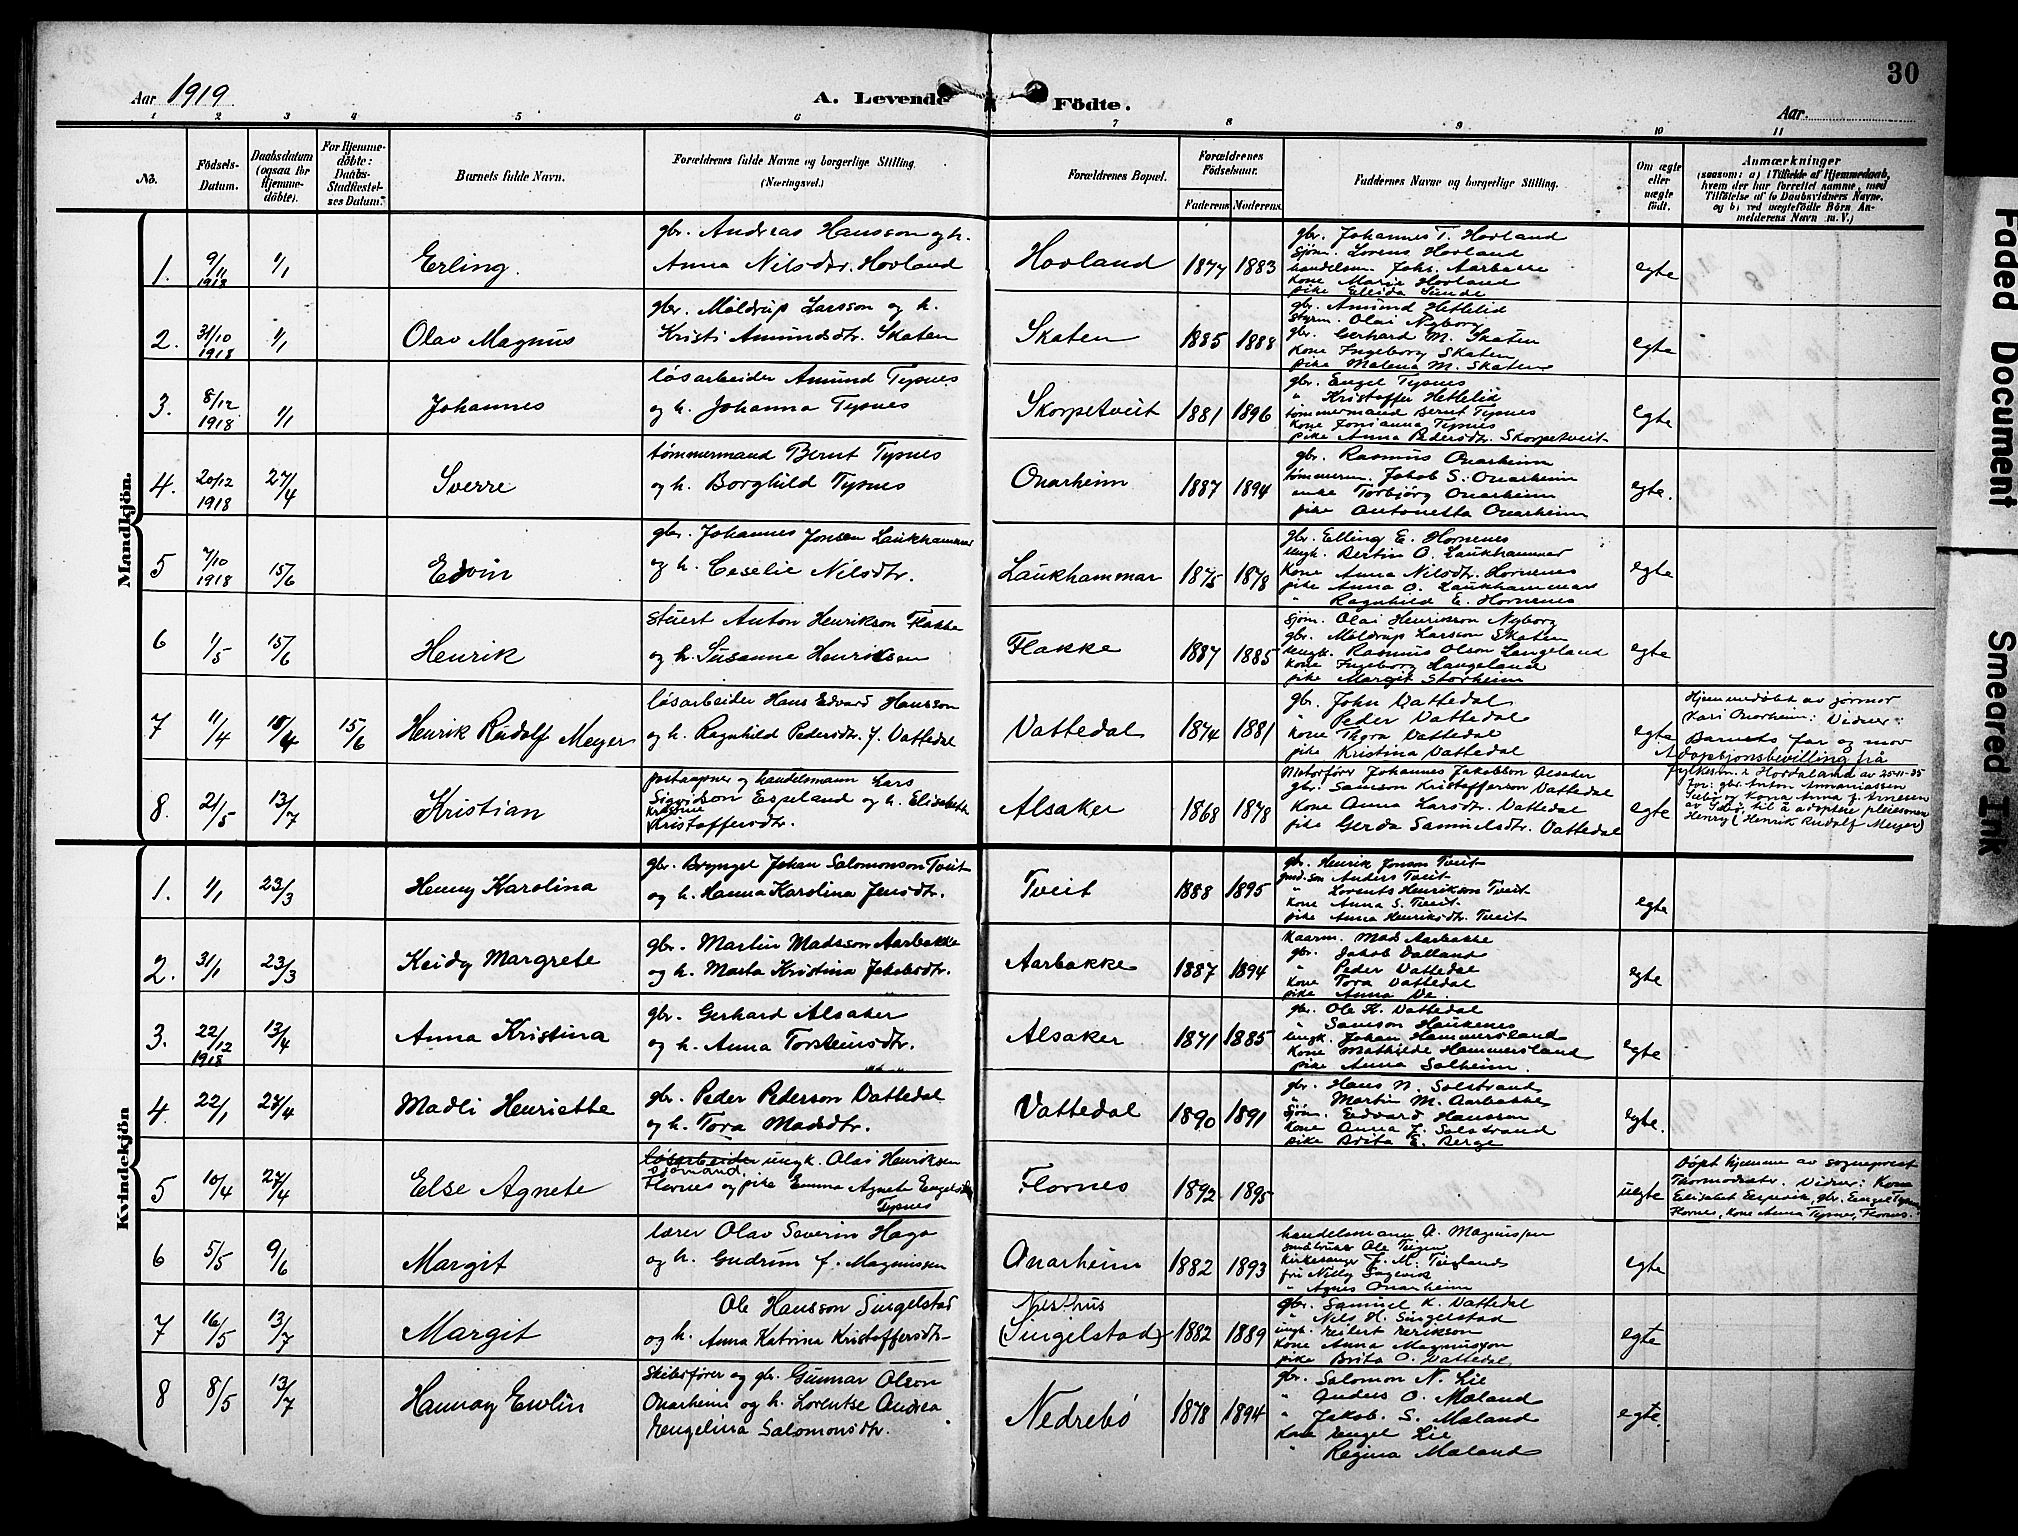 30
Aar 1919
A. Levende Födte.
Aar
1 2 3 4 5 6 7 8 9 10 11
No.
Födsels-
Datum.
Daabsdatum
(ogsaa for
Hjemme-
döbte).
For Hjemme-
döbte:
Daabs-
Stadfæstel-
ses Datum.
Barnets fulde Navn.
Forældrenes fulde Navne og borgerlige Stilling.
(Næringsvei.)
Forældrenes Bopæl.
Forældrenes
Födselsaar.
Faderens Moderens
Faddernes Navne og borgerlige Stilling.
Om ægte
eller
uægte
födt.
Anmærkninger
(saasom: a) i Tilfælde af Hjemmedaab,
hvem der har forrettet samme, med
Tilföielse af to Daabsvidners Navne.
og b) ved uægtefödte Börn An-
melderens Navn m. V.)
Mandkjön.
1. 9/11 1918 1/1 Erling.
gbr. Andreas Hansson og h.
Anna Nilsdtr. Hovland
Hovland 1877 1883
gbr. Johannes T. Hovland
Sjöm. Lorens Hovland
handelsm. Johs. Aarbakke
Kone Marie Hovland
pike Elida Sunde
egte
2. 31/10 1918 1/1 Olav Magnus
gbr. Möldrup Larsson og h.
Kristi Amundsdtr. Skaten
Skaten 1885 1888
gbr. Amund Hetlelid
Styrm. Olai Nyborg
gbr. Gerhard M. Skaten
Kone Ingeborg Skaten
pike Malena M. Skaten
egte
3. 8/12 1918 1/1 Johannes
løsarbeider Amund Tysnes
og h. Johanna Tysnes
Skorpetveit 1881 1896
gbr. Engel Tysnes
" Kristoffer Hetlelid
tømmermand Bernt Tysnes
Kone Jonsanna Tysnes
pike Anna Pedersdtr. Skorpetveit
egte
4. 20/12 1918 27/4 Sverre
tømmermand Bernt Tysnes
og h. Borghild Tysnes
Onarheim 1887 1894
gbr. Rasmus Onarheim
tømmerm. Jakob S. Onarheim
enke Torbjørg Onarheim
pike Antonetta Onarheim
egte.
5 7/10 1918 15/6 Edvin
gbr. Johannes Jonsen Laukhammar
og h. Ceselie Nilsdtr.
Laukhammar 1875 1878
gbr. Elling E. Hornenes
Ungk. Bertin O. Laukhammar
Kone Anna Nilsdtr. Hornenes
pike Anna O. Laukhammar
" Ragnhild E. Hornenes
egte
6 1/5 15/6 Henrik
stuert Anton Henrikson Flakke
og h. Susanne Henriksen
Flakke 1887 1885
Sjöm. Olai Henrikson Nyborg
gbr. Möldrup Larsson Skaten
Ungk. Rasmus Olson Langeland
Kone Ingeborg Langeland
pike Margit Storheim
egte
7 11/4 18/4 15/6 Henrik Rudolf Meyer
løsarbeider Hans Edvard Hansson
og h. Ragnhild Pedersdtr. f. Vattedal
Vattedal 1874 1881
gbr. John Vattedal
" Peder Vattedal
Kone Thora Vattedal
pike Kristina Vattedal
egte
Hjemmedøbt av jormor
Kari Onarheim: Vidner:
Barnets far og mor
Adopsjonsbevilling frå
fylkesm. i Hordaland av 25-11-35
for: gbr. Anton Ammaniassen
og kona Anna f. Arnesen
til å adoptere pleiesonen
Henry (Henrik Rudolf Meyer)
8. 21/5 13/7 Kristian
postaapner og handelsmann Lars
Sigvidson Espeland og h. Elisabeth
Kristine
Kristoffersdtr.
Alsaker 1868 1878
Motorfører Johannes Jakobson Alsaker
gbr. Samson Kristofferson Vattedal
Kone Anna Larsdtr. Vattedal
pike Gerda Samuelsdtr. Vattedal
egte
Kvindekjön
1. 1/1 23/3 Henny Karolina
gbr. Brynjel Johan Salomonson Tveit
og h. Hanna Karolina Jensdtr.
Tveit 1888 1895
gbr. Henrik Jonson Tveit
gmd.søn Anders Tveit
" Lorents Henrikson Tveit
Kone Anna S. Tveit
pike Anna Henriksdtr. Tveit
egte
2. 31/1 23/3 Keidy Margrete
gbr. Martin Madsson Aarbakke
og h. Marta Kristina Jakobsdtr.
Aarbakke 1887 1894
Kaarm. Mads Aarbakke
gbr. Jakob Dalland
" Peder Vattedal
Kone Tora Vattedal
pike Anna Ve.
egte
3. 22/12 1918 13/4 Anna Kristina
gbr. Gerhard Alsaker
og h. Anna Torsteinsdtr.
Alsaker 1871 1885
gbr. Ole K. Vattedal
" Samson Haukenes
ungk. Johan Hammersland
Kone Mathilde Hammersland
pike Anna Solheim.
egte
4. 22/1 27/4 Madli Henriette
gbr. Peder Pederson Vattedal
og h. Tora Madsdtr.
Vattedal 1890 1891
gbr. Hans N. Solstrand
" Martin M. Aarbakke
Sjöm. Edvard Hansson
Kone Anna J. Solstrand
pike Brita E. Berge
egte.
5 10/4 27/4 Else Agnete
løsarbeider ungk. Olai Henriksen
sjömand
Flornes og pike Emma Agnete Engelsdtr
Tysnes
Flornes 1892 1895
uegte
Døpt hjemme av sogneprest
Thormodsætr. Vidner: Kone
Elisabet Espevik, gbr. Engel Tysnes
Flornes, Kone Anna Tysnes, Flornes.
6 5/5 9/6 Margit
lærer Olav Severin Haga
og h. Gudrun f. Magnussen
Onarheim 1882 1893
handelsmann A. Magnussen
småbruker Ole Teigen
Kirkesanger J. M. Teigland
frk Nilly
" Agnes Onarheim
egte
7 16/5 13/7 Margit
Ole Hansson Singelstad
og h. Anna Katrina Kristoffersdtr-
Nesthus
(Singelstad) 1882 1889
gbr. Samuel K. Vattedal
" Nils H. Singelstad
ungk. Eilert Erikson
Kone Anna Magnusson
pike Brita O. Vattedal
egte
8 8/5 13/7 Hannay Evelin
Skibsfører og gbr. Gunnar Olson
Onarheim og h. Lorentse Andrea
Engelina Salomonsdtr.
Nedrebø 1878 1894
gbr. Salomon N. Lie
" Anders O. Mæland
" Jakob. S. Mæland
Kone Engel Lie
" Regina Mæland
egte.
Faded Document
Smeared Ink